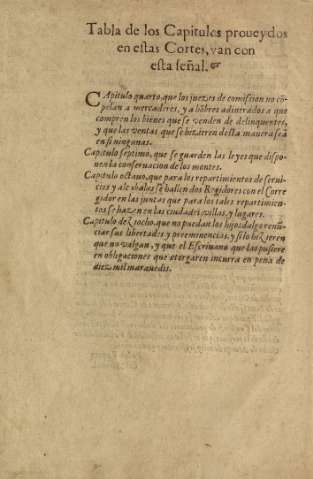 Tabla de los Capitulos proueydos
en estas Cortes, van con
esta señal.☞
CApitulo quarto, que los juezes de comission no cõ-
pelan a mercaderes, y a hõbres adinerados a que
compren los bienes que se venden de delinquentes,
y que las ventas que se hizieren desta manera seã
en si ningunas.
Capitulo septimo, que se guarden las leyes que dispo-
nen la conseruacion de los montes.
Capitulo octauo, que para los repartimientos de serui-
cios y alcabalas se hallen dos Regidores con el Corre
gidor en las juntas que para los tales repartimien-
tos se hazen en las ciudades villas, y lugares.
Capitulo deziocho, que no puedan los hijosdalgo renũ-
ciar sus libertades y preeminencias, y si lo hizieren
que no valgan, y que el Escriuano que las pusiere
en obligaciones que otorgaren incurra en pena de
diez mil marauedis.